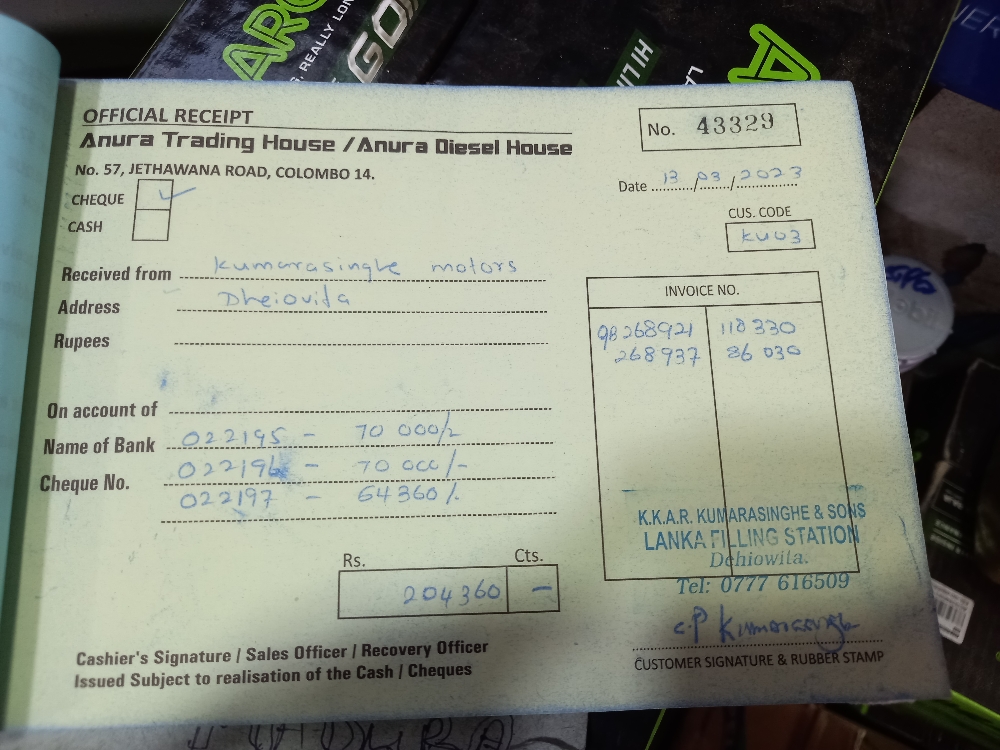 S, REALLY LON
GO
HI LI
LA
OFFICIAL RECEIPT
Anura Trading House / Anura Diesel House
No. 57, JETHAWANA ROAD, COLOMBO 14.
No. 43329
Date 13/03/2023
CHEQUE ✓
CASH
CUS. CODE
KU03
Received from Kumarasinghe motors
Address Dheiovita
Rupees
INVOICE NO.
98268921 118 330
268937 86 030
On account of
Name of Bank 022195 - 70 000/-
Cheque No. 022196 - 70 000/-
022197 - 64360/.
K.K.A.R. KUMARASINGHE & SONS
LANKA FILLING STATION
Dehiowita.
Tel: 0777 616509
Rs. Cts.
204360 -
C.P Kumarasinghe
CUSTOMER SIGNATURE & RUBBER STAMP
Cashier's Signature / Sales Officer / Recovery Officer
Issued Subject to realisation of the Cash / Cheques